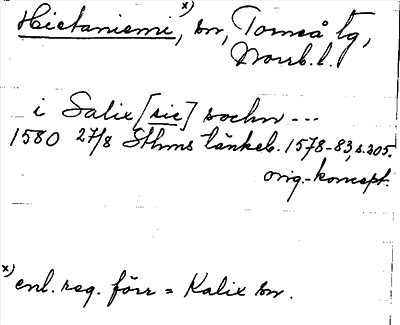 Hietaniemi, x) sn, Torneå tg,
Norrb. l.
i Salix [sic] sochn ...
1580 27/8 Sthms tänkeb. 1578-83, s. 305.
orig.-koncept.
x) enl. reg. förr = Kalix sn.